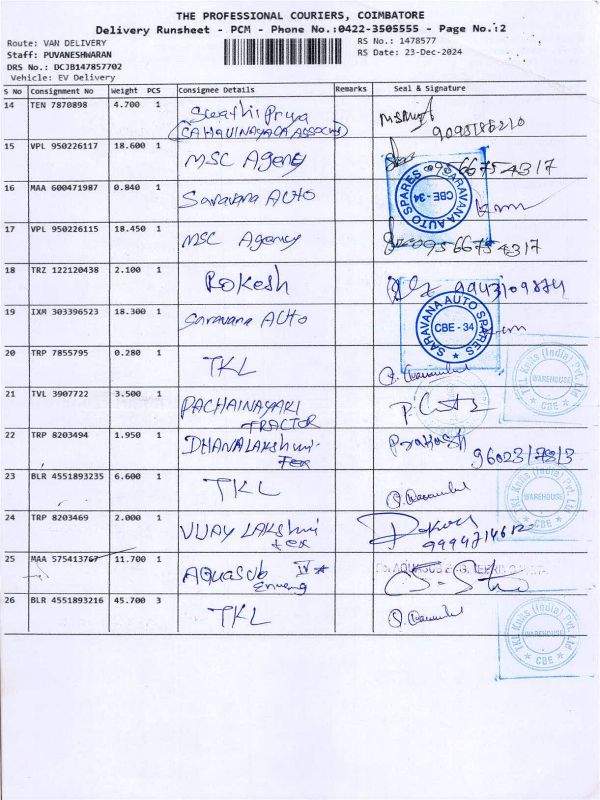 THE PROFESSIONAL COURIERS, COIMBATORE
Delivery Runsheet - PCM - Phone No.:0422-3505555 - Page No.:2
Route: VAN DELIVERY RS No.: 1478577
Staff: PUVANESHWARAN RS Date: 23-Dec-2024
DRS No.: DCJB147857702
Vehicle: EV Delivery
S No Consignment No Weight PCS Consignee Details Remarks Seal & Signature
14 TEN 7870898 4.700 1 Swathi Priya
15 VPL 950226117 18.600 1 MSC Agency 9566754317
16 MAA 600471987 0.840 1 Saravana AUTO
SARAVANA AUTO SPARES CBE - 34
17 VPL 950226115 18.450 1 MSC Agency 9566754317
18 TRZ 122120438 2.100 1 Rokesh 9943109874
19 IXM 303396523 18.300 1 Saravana AUTO
SARAVANA AUTO SPARES CBE - 34
20 TRP 7855795 0.280 1 TKL
TKL Knits (India) Pvt. Ltd WAREHOUSE CBE
21 TVL 3907722 3.500 1 PACHAINAYAKI
TRACTOR
22 TRP 8203494 1.950 1 DHANALAKSHMI Prakash
Tex
23 BLR 4551893235 6.600 1 TKL
TKL Knits (India) Pvt. Ltd WAREHOUSE CBE
24 TRP 8203469 2.000 1 VIJAY LAKSHMI
tex 9994214612
25 MAA 575413767 11.700 1 AQUASUB
26 BLR 4551893216 45.700 3 TKL
TKL Knits (India) Pvt. Ltd WAREHOUSE CBE